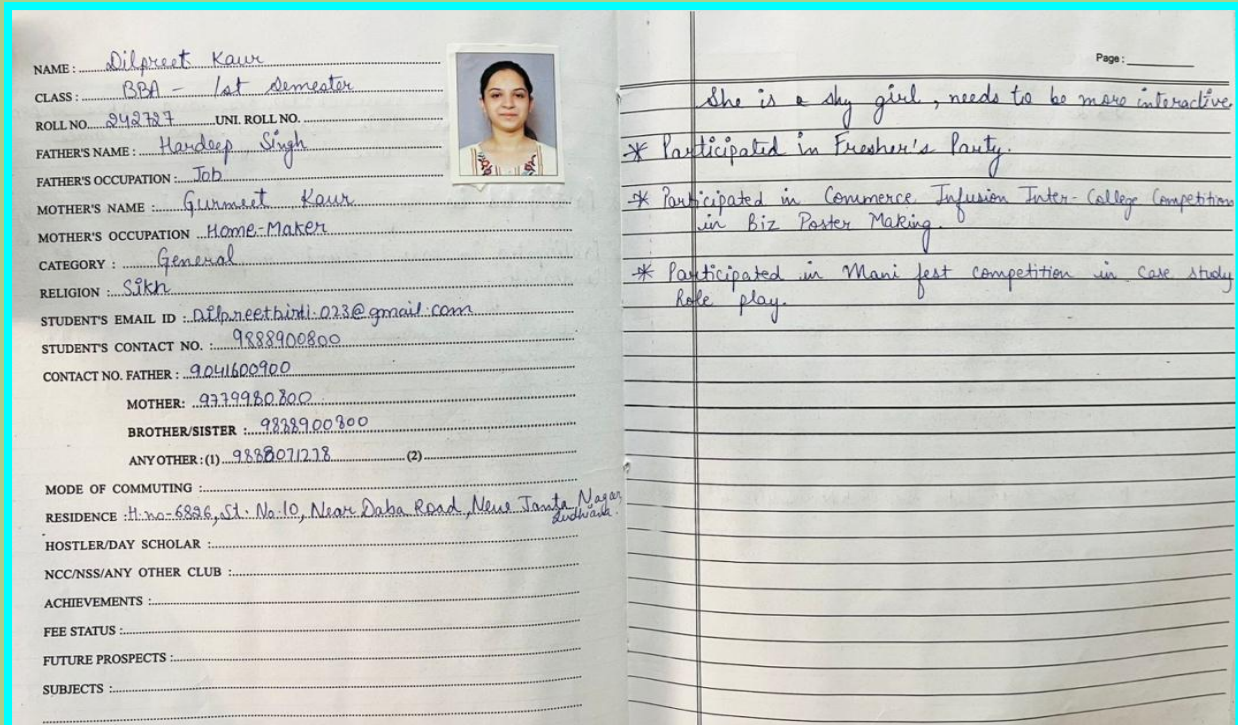 NAME : Dilpreet Kaur
CLASS : BBA - 1st Semester
ROLL NO. 242727 UNI. ROLL NO.
FATHER'S NAME : Hardeep Singh
FATHER'S OCCUPATION : Job
MOTHER'S NAME : Gurmeet Kaur
MOTHER'S OCCUPATION Home-Maker
CATEGORY : General
RELIGION : Sikh
STUDENT'S EMAIL ID : @gmail.com
STUDENT'S CONTACT NO. : 9888900800
CONTACT NO. FATHER : 9041600900
MOTHER: 9779980800
BROTHER/SISTER :
ANY OTHER : (1) (2)
MODE OF COMMUTING :
RESIDENCE : H.no-6826, St. No.10, Near Daba Road, New Janta Nagar
Ludhiana.
HOSTLER/DAY SCHOLAR :
NCC/NSS/ANY OTHER CLUB :
ACHIEVEMENTS :
FEE STATUS :
FUTURE PROSPECTS :
SUBJECTS :
Page :
She is a shy girl, needs to be more interactive.
* Participated in Fresher's Party.
* Participated in Commerce Infusion Inter-College Competition
in Biz Poster Making.
* Participated in Mani fest competition in case study
Role play.